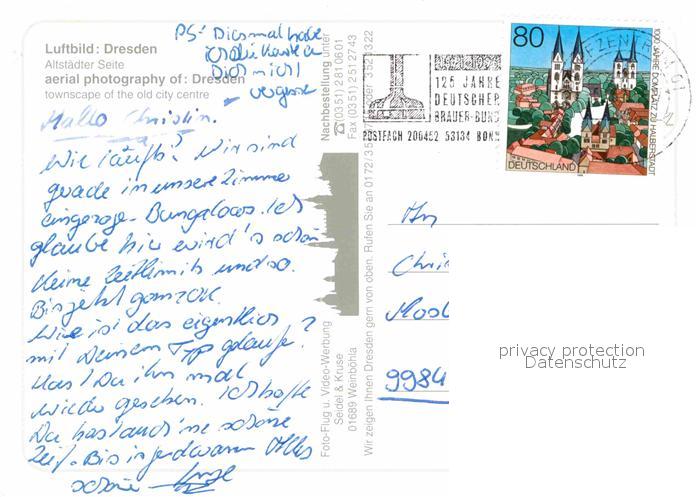 Luftbild: Dresden
Altstädter Seite
aerial photography of: Dresden
townscape of the old city centre
PS: Diesmal habe
ich die Karte
Dich nicht
vergesse
Hallo Christin.
Wie läufts? Wir sind
gerade in unsere Zimmer
eingezoge- Bungalows. Ich
glaube hier wird's schön
Keine Zeitlimits und so.
Bis jetzt ganz ok.
Wie ist das eigentlich
mit Deinem Typ gelaufe?
Hast Du ihn mal
wieder gesehen. Ich hoffe
Du hast auch 'ne schöne
Zeit. Bis irgendwann Alles
schöne
Nachbestellung unter
☎(0351) 281 06 01
Fax (0351) 251 27 43
Foto-Flug u. Video-Werbung
Seidel & Kruse
01689 Weinböhla
Wir zeigen Ihnen Dresden gern von oben. Rufen Sie an 0172/35
oder 3529322
125 JAHRE
DEUTSCHER
BRAUER-BUND
POSTFACH 200452 53134 BONN
80
1000 JAHRE DOMPLATZ ZU HALBERSTADT
DEUTSCHLAND
BRIEFZENTRUM
An
Chri
Mosb
9984
privacy protection
Datenschutz